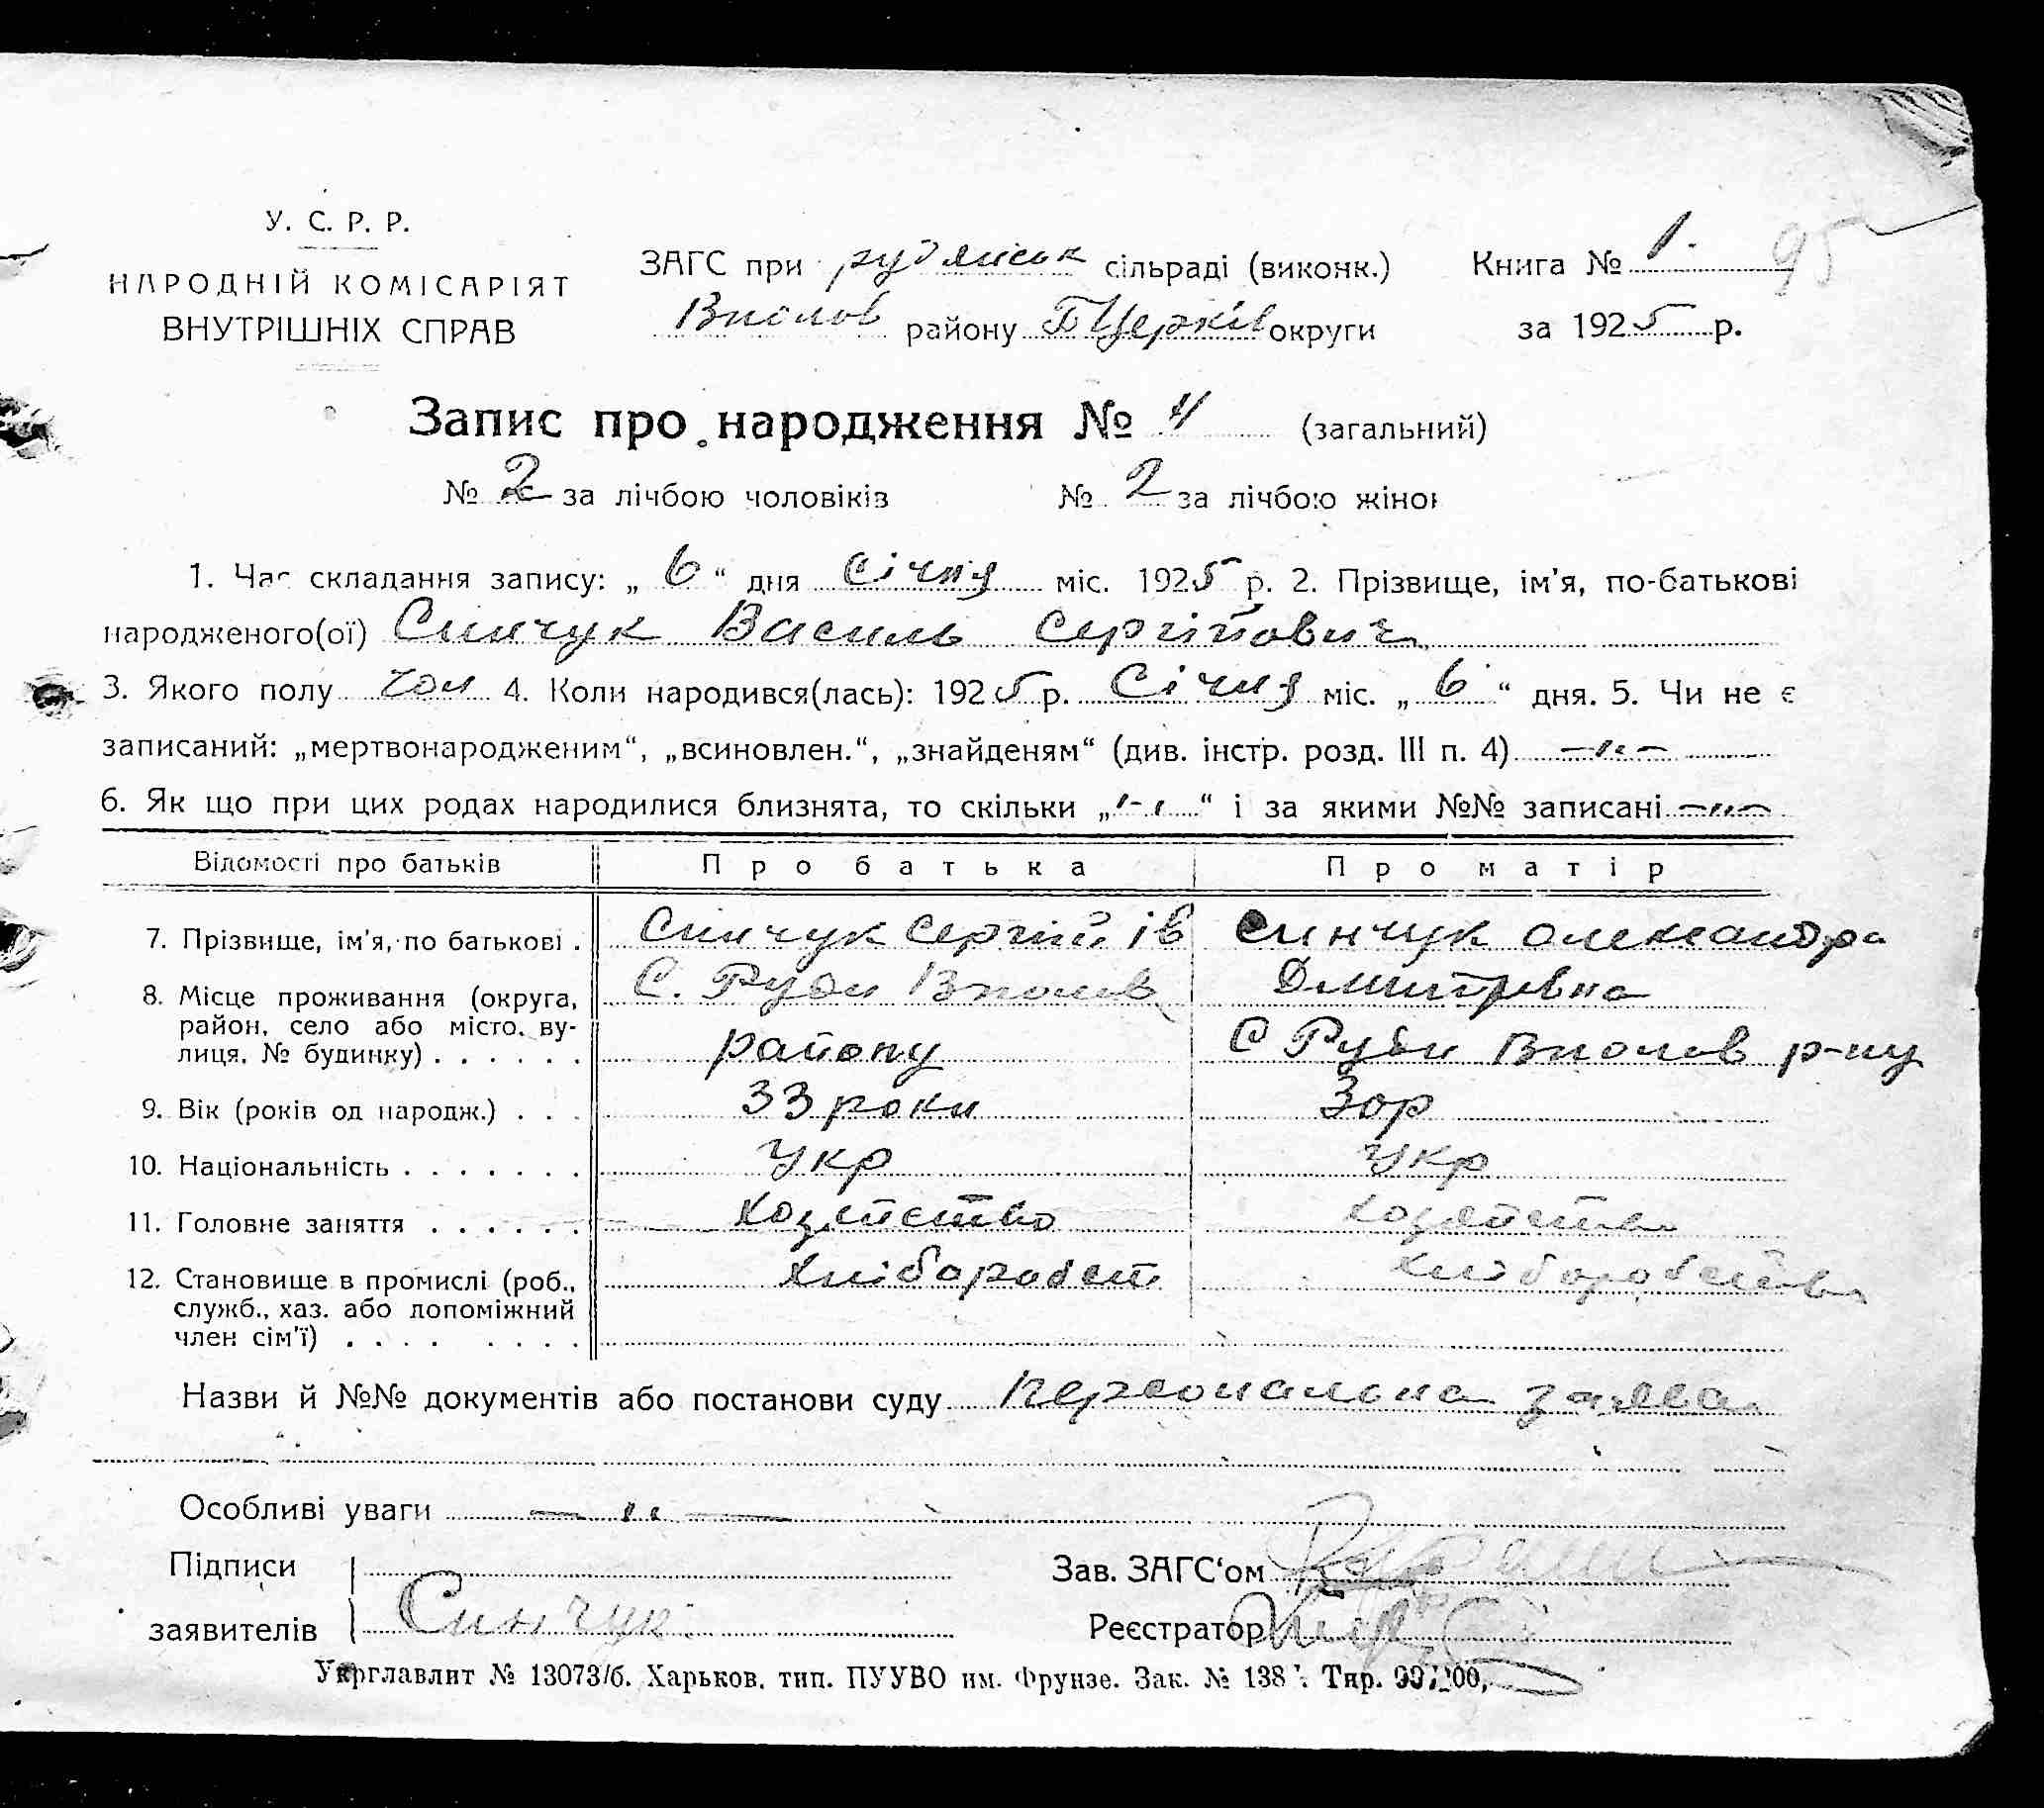 У. С. Р. Р.
НАРОДНІЙ КОМІСАРІЯТ
ВНУТРІШНІХ СПРАВ
ЗАГС при рудянськ сільраді (виконк.)
Вполов району БЦерків округи
Книга № 1. 95
за 1925 р.
Запис про народження № 4 (загальний)
№ 2 за лічбою чоловіків № 2 за лічбою жінок
1. Час складання запису: „ 6 “ дня Січня міс. 1925 р. 2. Прізвище, ім'я, по-батькові
народженого(ої) Синчук Василь Сергійович
3. Якого полу чол 4. Коли народився(лась): 1925 р. Січня міс. „ 6 “ дня. 5. Чи не є
записаний: „мертвонародженим“, „всиновлен.“, „знайденям“ (див. інстр. розд. III п. 4) –„–
6. Як що при цих родах народилися близнята, то скільки „ “ і за якими №№ записані –„–
Відомості про батьків Про батька Про матір
7. Прізвище, ім'я, по батькові . Синчук Сергій Ів Синчук Олександра
Дмитревна
8. Місце проживання (округа, С. Руди Вполов
район, село або місто, ву-
лиця, № будинку) . . . . . . району С Руди Вполов р-ну
9. Вік (років од народж.) . . . 33 роки 30р
10. Національність . . . . . . . Укр Укр
11. Головне заняття . . . . . . Хозяйство Хозяйство
12. Становище в промислі (роб., Хлібороб
служб., хаз. або допоміжний
член сім'ї) . . . . . . . .
Назви й №№ документів або постанови суду Персональна заява
Особливі уваги – „ –
Підписи
заявителів Синчук
Зав. ЗАГС‘ом
Реєстратор
Укрглавлит № 13073/б. Харьков. тип. ПУУВО им. Фрунзе. Зак. № 138 Тир.